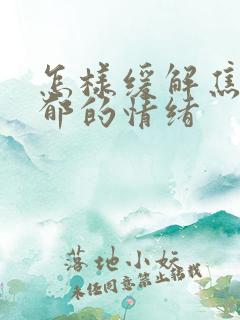 怎样缓解焦
郁的情绪
落地小妖
未经同意禁止转载